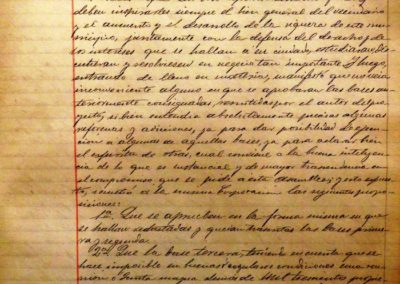 deben inspirarse siempre el bien general del vecindario
y el aumento y el desarrollo de la riqueza de este mu-
nicipio, juntamente con la defensa del derecho y de
los intereses que se hallan a su cuidado, estudiaran, dis-
cutieran y resolviesen en negocio tan importante. Y luego,
entrando de lleno en materia, manifestó que no veía
inconveniente alguno en que se aprobaran las bases an-
teriormente consignadas, remitidas por el autor del pro-
yecto, si bien entendía absolutamente precisas algunas
reformas y adiciones, ya para dar posibilidad de
a algunas de aquellas bases, ya para aclarar bien
el de obras, cual conviene a la buena inteligen-
cia de lo que es sustancial y de mayor transcendencia en
el compromiso que se pide a esta Asamblea; y a este efec-
to, sometió a la misma Corporación las siguientes propo-
siciones:
1ª. Que se aprueben en la forma misma en que
se hallan redactadas y quedan transcritas las bases prime-
ra y segunda.
2ª. Que la base tercera, teniendo en cuenta que se
hace imposible en buenas y regulares condiciones una
a mil trescientos